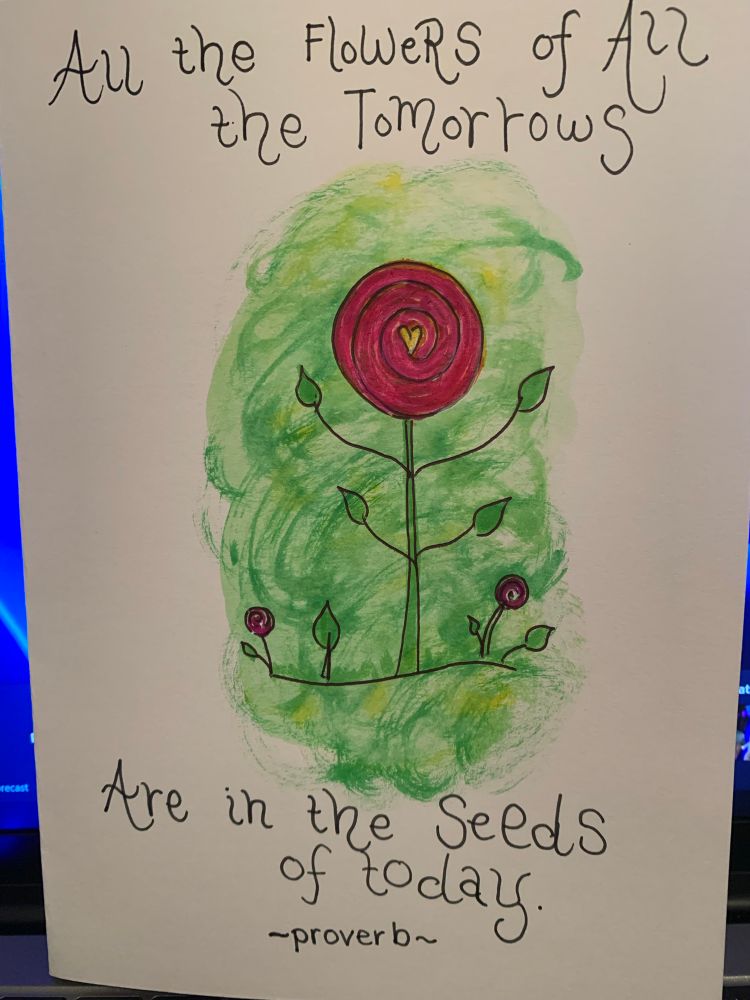 All the FloweRS of All
the Tomorrows
Are in the Seeds
of today.
~proverb~
recast
at